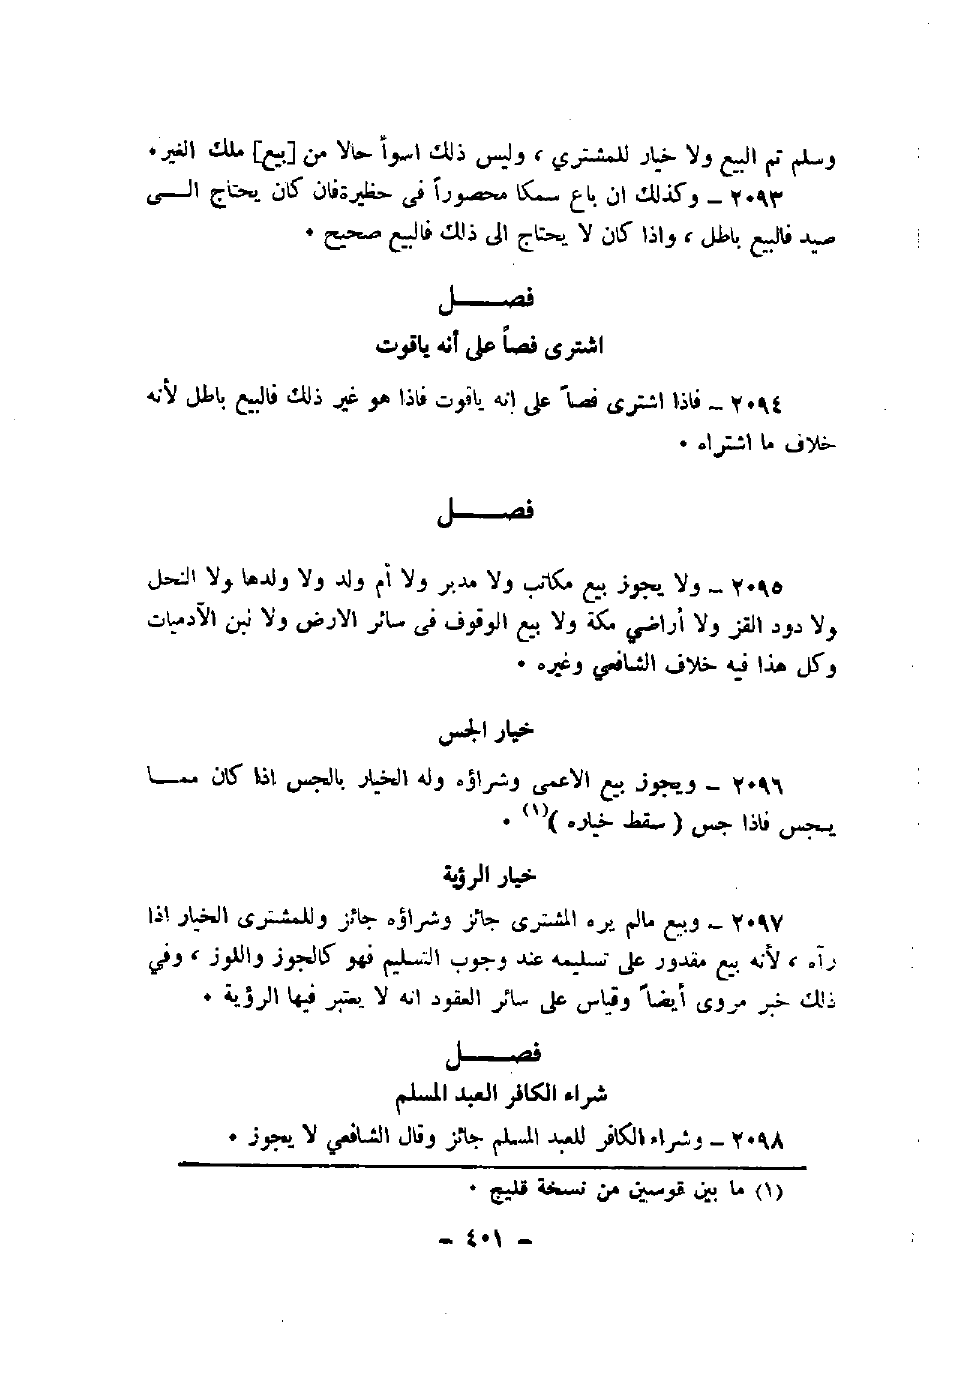 وسلم تم البيع ولا خيار للمشتري ، وليس ذلك اسوأ حالا من [بيع] ملك الغير •
٢٠٩٣ – وكذلك ان باع سمكا محصوراً في حظيرة فان كان يحتاج الــى
صيد فالبيع باطل ، واذا كان لا يحتاج الى ذلك فالبيع صحيح •
فصــــل
اشترى فصاً على أنه ياقوت
٢٠٩٤ – فاذا اشترى فصاً على انه ياقوت فاذا هو غير ذلك فالبيع باطل لأنه
خلاف ما اشتراه •
فصــــل
٢٠٩٥ – ولا يجوز بيع مكاتب ولا مدبر ولا أم ولد ولا ولدها ولا النحل
ولا دود القز ولا أراضي مكة ولا بيع الوقوف في سائر الارض ولا لبن الآدميات
وكل هذا فيه خلاف الشافعي وغيره •
خيار الجس
٢٠٩٦ – ويجوز بيع الاعمى وشراؤه وله الخيار بالجس اذا كان ممــا
يجس فاذا جس ( سقط خياره )(١) •
خيار الرؤية
٢٠٩٧ – وبيع مالم يره المشترى جائز وشراؤه جائز وللمشترى الخيار اذا
رآه ، لأنه بيع مقدور على تسليمه عند وجوب التسليم فهو كالجوز واللوز ، وفي
ذلك خبر مروى أيضاً وقياس على سائر العقود انه لا يعتبر فيها الرؤية •
فصــــل
شراء الكافر العبد المسلم
٢٠٩٨ – وشراء الكافر للعبد المسلم جائز وقال الشافعي لا يجوز •
(١) ما بين قوسين من نسخة قليج •
– ٤٠١ –